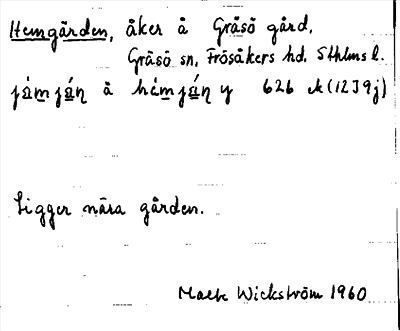 Hemgården, åker å Gräsö gård,
Gräsö sn, Frösåkers hd. Sthlms l.
jámján å hémján y 626 A (12J9j)
Ligger nära gården.
Wickström 1960